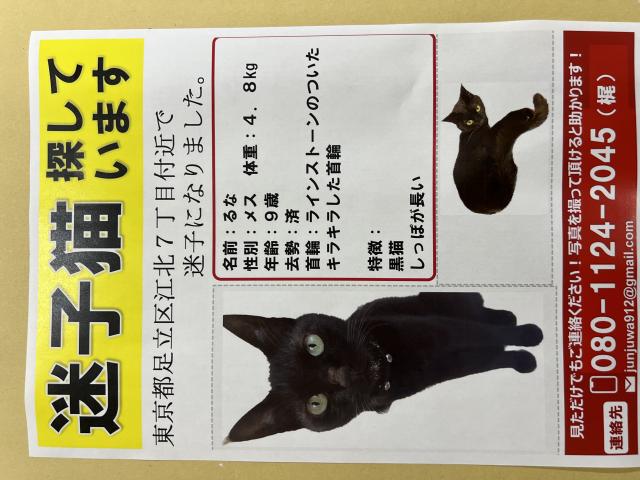 迷子猫 探して
います
東京都足立区江北7丁目付近で
迷子になりました。
名前：るな
性別：メス 体重：4．8kg
年齢：9歳
去勢：済
首輪：ラインストーンのついた
キラキラした首輪
特徴：
黒猫
しっぽが長い
見ただけでもご連絡ください！写真を撮って頂けると助かります！
連絡先
080-1124-2045（梶）
junjuwa912@gmail.com